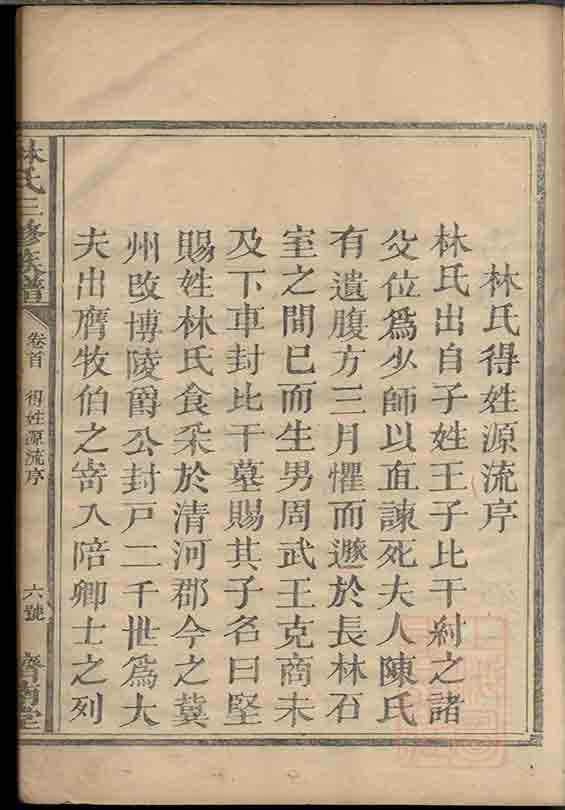 林氏得姓源流序
林氏出自子姓王子比干紂之諸
父位爲少師以直諫死夫人陳氏
有遺腹方三月懼而遯於長林石
室之間已而生男周武王克商未
及下車封比干墓賜其子名曰堅
賜姓林氏食采於清河郡今之冀
州改博陵爵公封戸二千世爲大
夫出膺牧伯之寄入陪卿士之列
林氏三修族譜
卷首
得姓源流序
六號